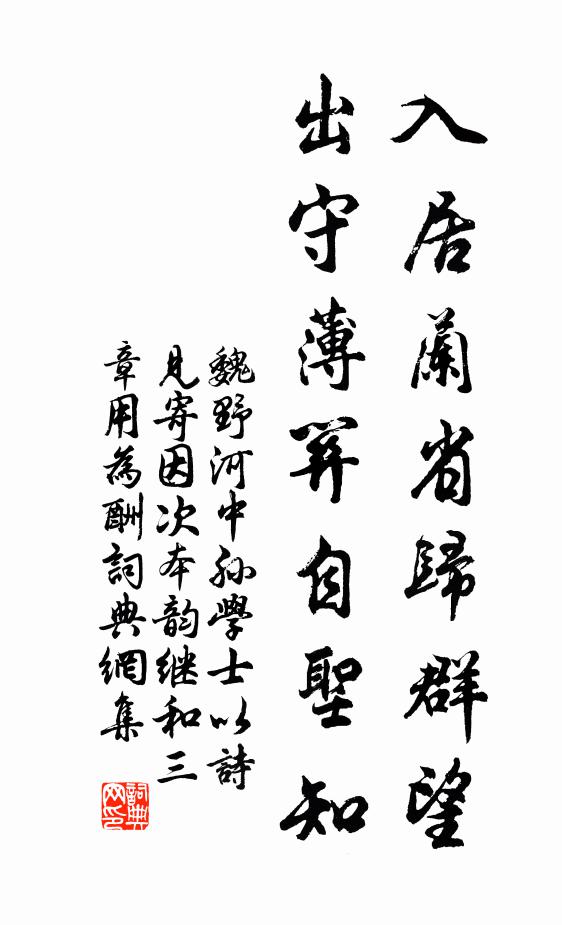 入居蘭省歸群望
出守薄關自聖知
魏野河中孫學士以詩
見寄因次本韵継和三
章用為酬詞典網集
詞典
网印